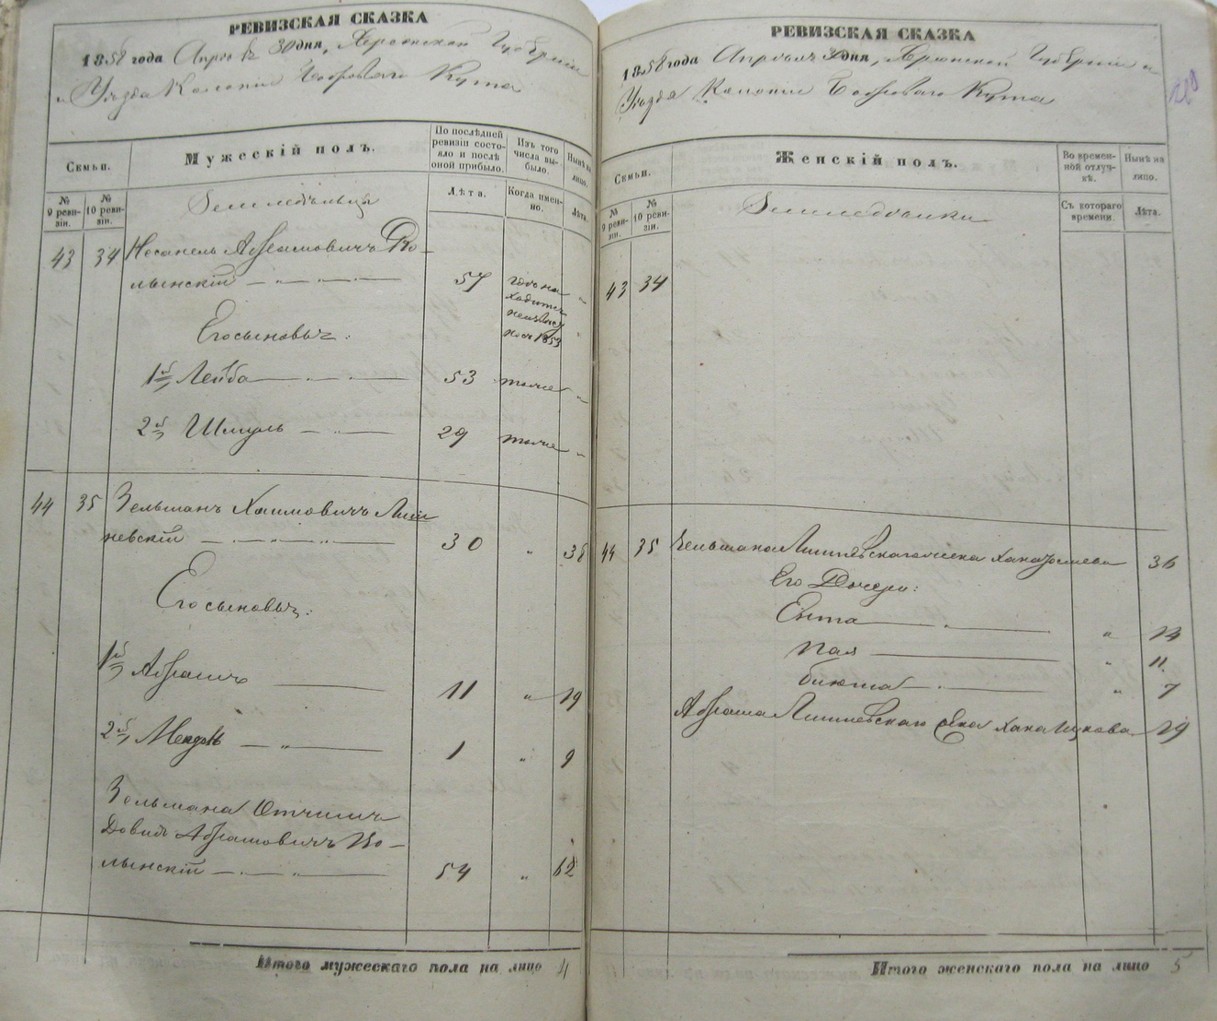 РЕВИЗСКАЯ СКАЗКА
1858 года Апреля 30 дня, Херсонской Губернии
и Уезда Колонии Бобровый Кута
Семьи.
Мужескій полъ.
По послѣдней ревизіи состояло и послѣ оной прибыло.
Изъ того числа выбыло.
Нынѣ на лицо.
№ 9 ревизіи.
№ 10 ревизіи.
Лѣта.
Когда именно.
Лѣта.
Земледельцы
43 34 Несанель Абрамовичъ Во-
лынскій 57 "
Его сыновья:
1й Лейба 53 тоже "
2й Шмуль 29 тоже "
44 35 Зельманъ Хаимовичъ
невскій 30 " 38
Его сыновья:
1й Абрамъ 11 " 19
2й Мендель 1 " 9
Зельмана Отчимъ
Довидъ Абрамовичъ Во-
лынскій 54 " 62
Итого мужескаго пола на лицо 4
РЕВИЗСКАЯ СКАЗКА
1858 года Апреля 30 дня, Херсонской Губернии и
Уезда Колонии Бобровый Кута
Семьи.
Женскій полъ.
Во временной отлучкѣ.
Нынѣ на лицо.
№ 9 ревизіи.
№ 10 ревизіи.
Съ котораго времени.
Лѣта.
Земледелки
43 34
44 35 Зельмана жена Хана 36
Его Дочери:
Ента " 14
" 11
" 7
Абрама жена Хана 19
Итого женскаго пола на лицо 5